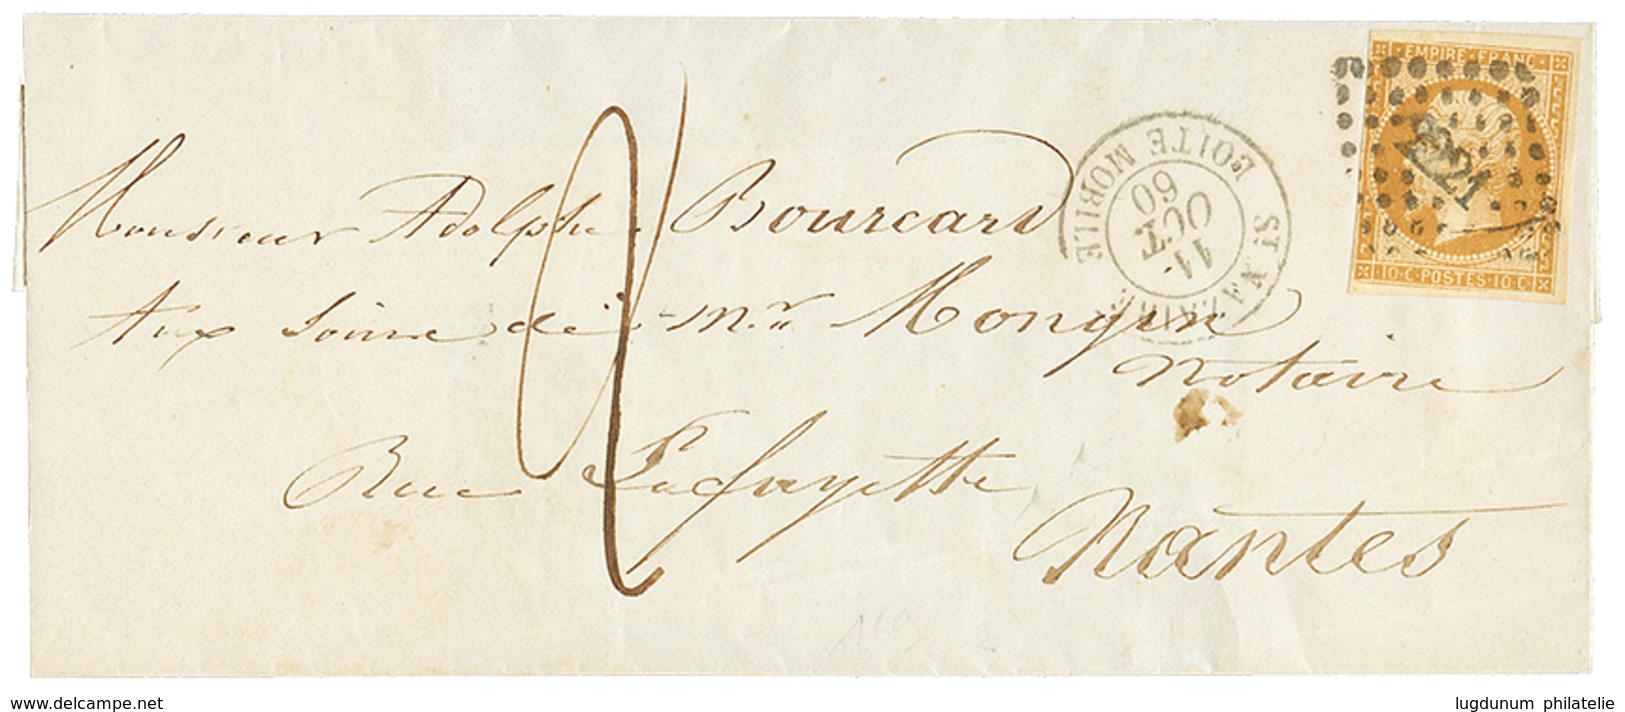 EMPIRE FRANC
10·C·POSTES·10·C
ST NAZAIRE
BOITE MOBILE
11
OCT.
60
2
Monsieur Adolphe Bourcart
Aux soins de Mr. Mongin
notaire
Rue Lafayette
Nantes
www.delcampe.net
lugdunum philatelie